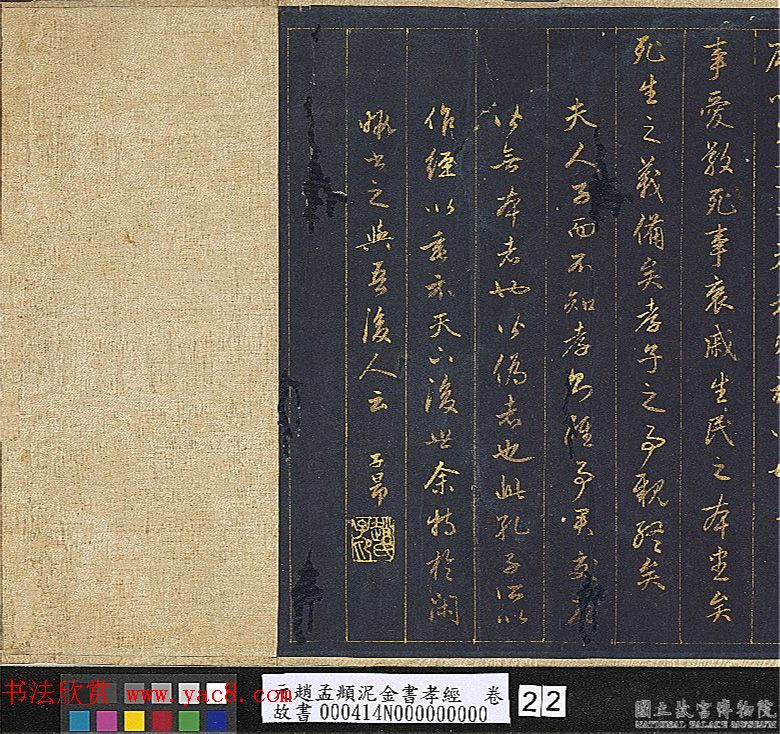 事愛敬死事哀戚生民之本盡矣
死生之義備矣孝子之事親終矣
夫人子而不知孝
皆無本者也皆偽者也此孔子所以
作經以垂示天下後世余特於閑
暇書之與吾後人云 子昂
趙氏子昂
书法欣赏 www.yac8.com
元趙孟頫泥金書孝經 卷 22
故書000414N000000000
國立故宮博物院
NATIONAL PALACE MUSEUM